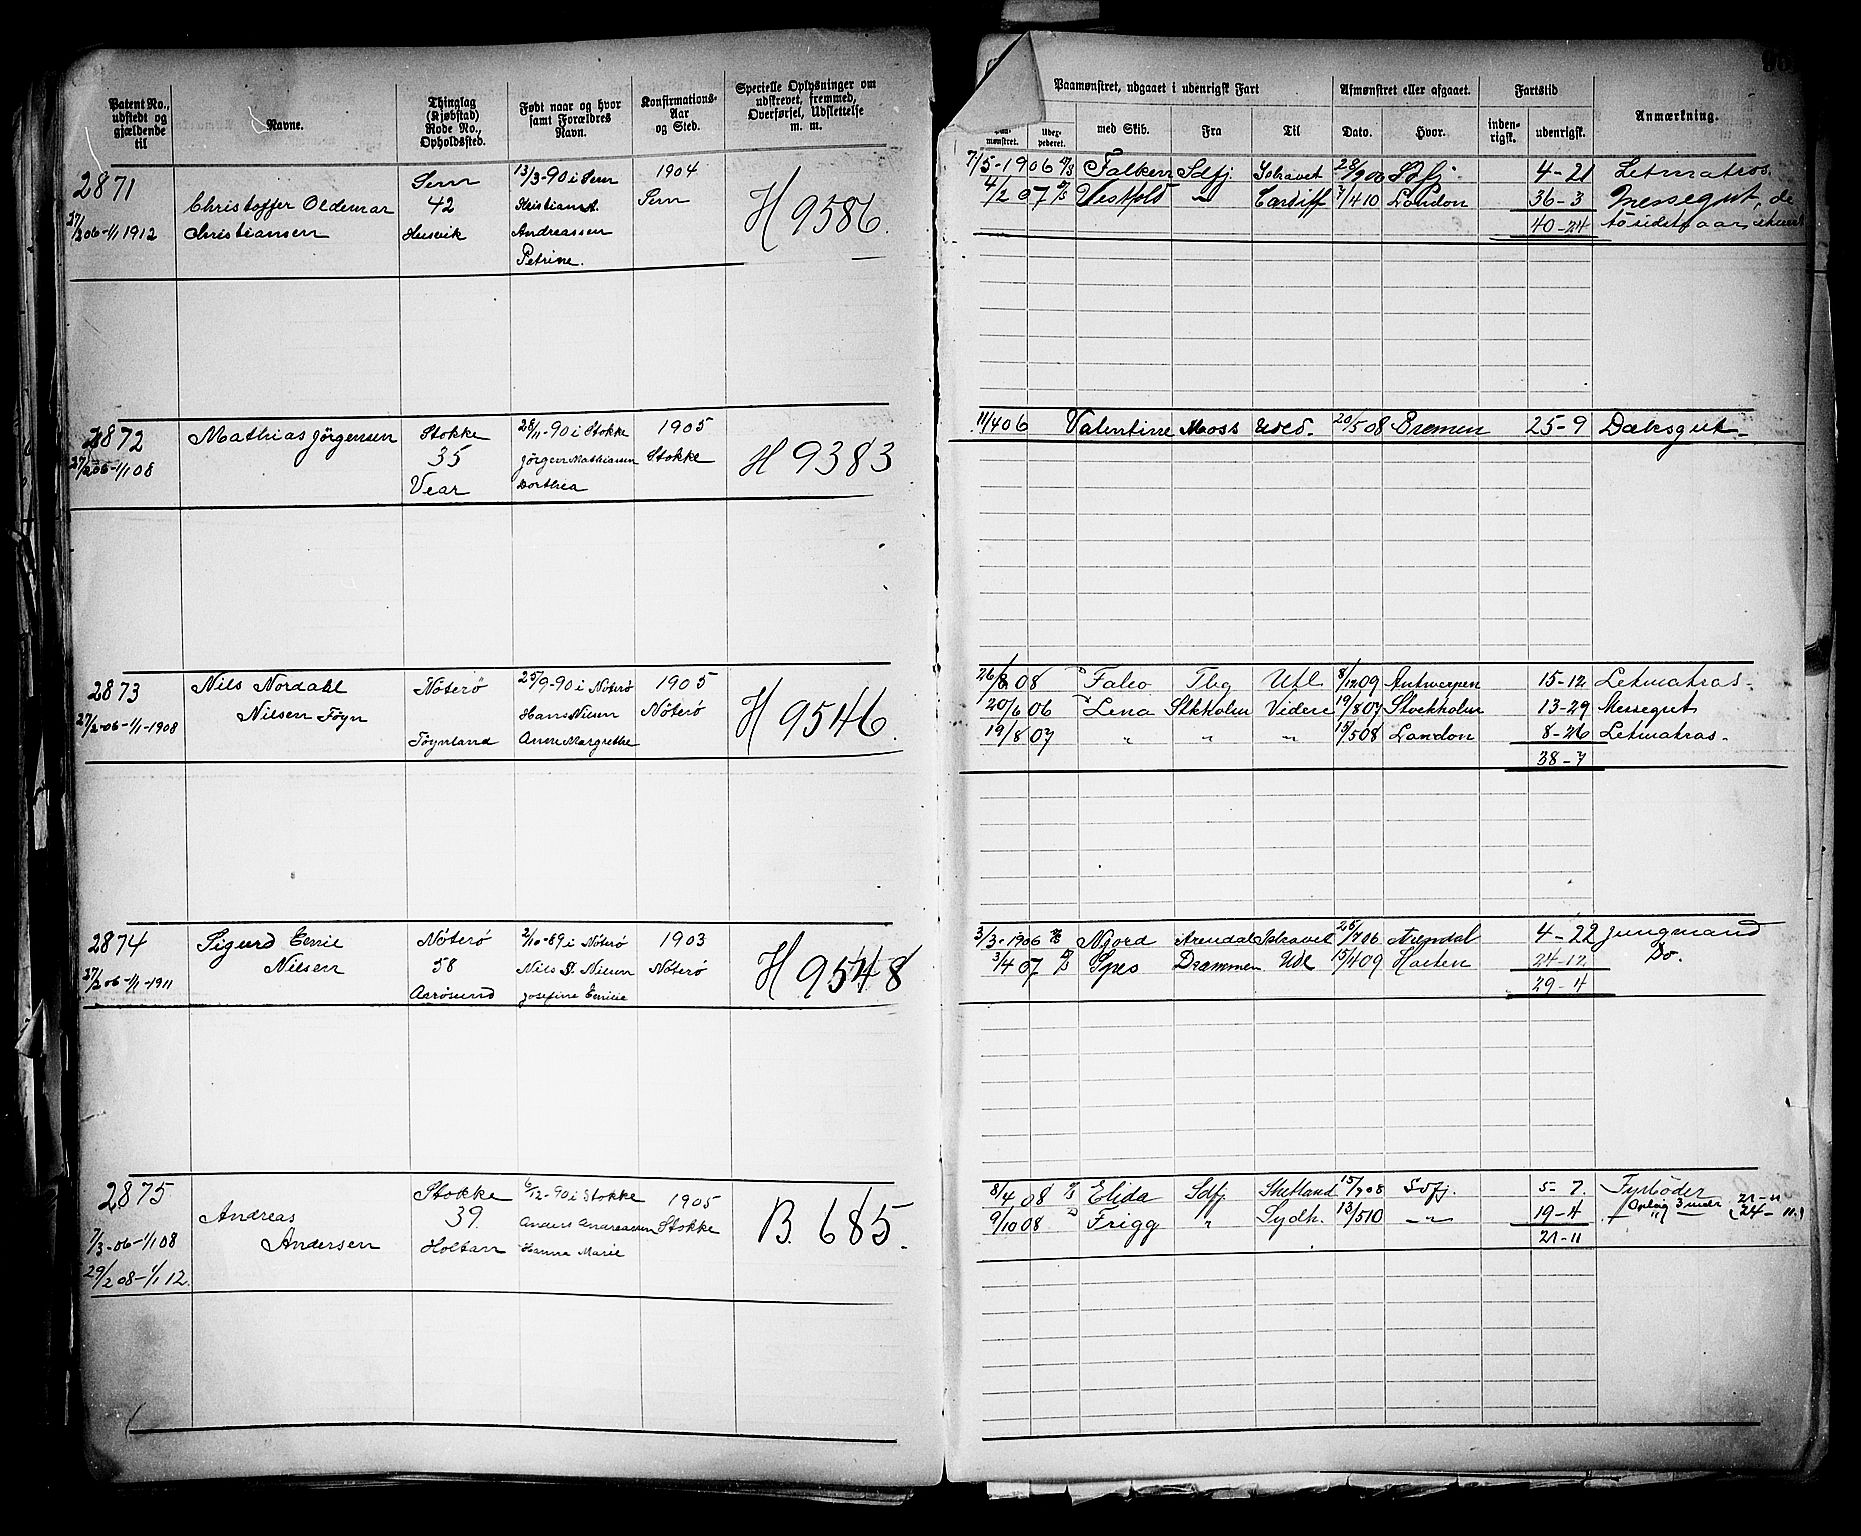 Patent No., udstedt og gjældende til
Navne.
Thinglag (Kjøbstad) Rode No., Opholdssted.
Født naar og hvor samt Forældres Navn.
Konfirmations-Aar og Sted.
Specielle Oplysninger om udskrevet, fremmed, Overførsel, Udslettelse m. m.
Paamønstret, udgaaet i udenrigsk Fart
mønstret.
med Skib.
Fra
Til
Afmønstret eller afgaaet.
Dato.
Hvor.
Fartstid
inden-rigsk.
udenrigsk.
Anmærkning.
2871
27/2 06-1/1 1912
Christoffer Oldemar
Christiansen
Sem
42
Husvik
13/3-90 i Sem
Kristian A.
Andreassen
Petrine.
1904
Sem
H 9586.
7/5-1906 Falken Sdfj Ishavet Sdfj. 4-21 Letmatros.
4/2 07 Vestfold " Cardiff 7/4 10 London 36-3 Messegut, de
40-24
2872
27/2 06-1/1 08
Mathias Jörgensen
Stokke
35
Vear
28/11-90 i Stokke
Jörgen Mathiassen
Dorthea
1905
Stokke
H 9383
11/4 06 Valentine Moss Uded. 20/5 08 Bremen 25-9 Dæksgut
2873
27/2-06-1/1-1908
Nils Nordahl
Nilsen Föyn
Nöterö
Föynland
25/9-90 i Nöterö
Hans Nilsen
Anne Margrethe
1905
Nöterö
H 9546.
26/8 08 Falco Tbg Utl 8/12 09 Antwerpen 15-12 Letmatros.
20/6 06 Lena Stkholm Videre 19/8 07 Stockholm 13-29 Messegut
19/8 07 " " " 15/5 08 London 8-26 Letmatros.
38-7
2874
27/2 06-1/1-1911
Sigurd Emil
Nilsen
Nöterö
58
Aarösund
2/10-89 i Nöterö
Nils S. Nilsen
Josefine Emilie
1903
Nöterö
H 9548
3/3-1906 Njord Arendal Ishavet 25/7 06 Arendal 4-22 Jungmand
3/4 07 Spes Drammen Udl 15/4 09 Horten 24-12 Do.
29-4
2875
7/3-06-1/1 08
29/2 08-1/1 12.
Andreas
Andersen
Stokke
39.
Holtan
6/12-90 i Stokke
Anders Andreassen
Hanna Marie
1905
Stokke
B. 685.
8/4 08 Elida Sdfj. Shetland 15/9 08 Sdfj. 5-7. Fyrböder
9/10 08 Frigg " Sydh. 13/5 10 " 19-4 Oplag 3 mdr (24-11.)
21-11